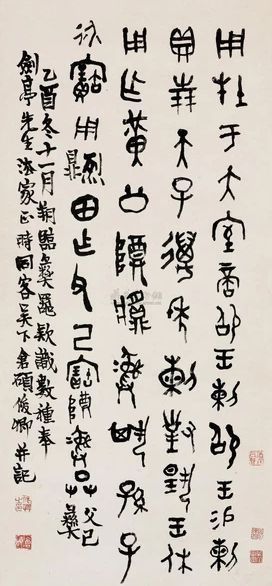 用牡于大室啻卲王剌卸王易剌
貝朋天子萬年剌對揚王休
用乍黃公尊彝孫子
永寶用剌鼎田乍父己寶尊彝父己彝
乙酉冬十一月臨彝器款識數種奉
劍亭先生法家正時同客吳下倉碩俊卿并記